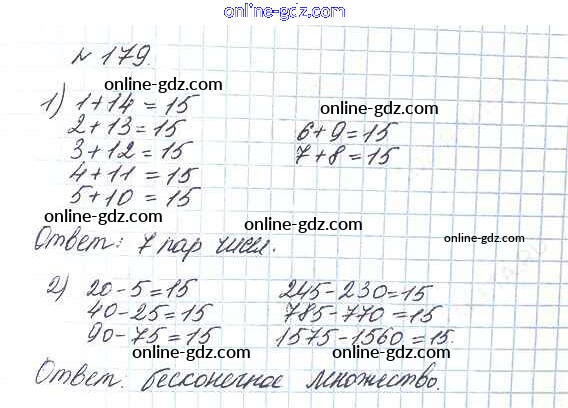 online-gdz.com
№ 179.
online-gdz.com
1) 1+14 = 15
online-gdz.com
2+13 = 15 6+9=15
3+12 = 15 7+8=15
4+11 = 15
online-gdz.com
5+10 = 15
online-gdz.com online-gdz.com
Ответ: 7 пар чисел.
online-gdz.com
2) 20-5=15 245-230=15
40-25=15 785-770=15
90-75=15 1575-1560=15.
online-gdz.com online-gdz.com
Ответ. бесконечное множество.
online-gdz.com